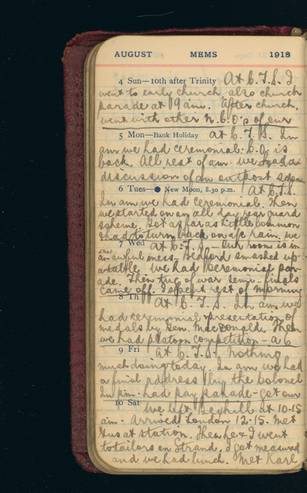 AUGUST MEMS 1918
4 Sun—10th after Trinity At 6.T.S. I
went to early church, also church
parade at 9 am. After church,
went with other N.C.O's of our
5 Mon—Bank Holiday at 6.T.S. In
am we had ceremonial. C.O. is
back. All rest of am. we had a
discussion of an outpost
6 Tues—● New Moon, 8.30 p.m. At 6.T.S.
In am we had ceremonial. Then
we started on an all day rear guard
scheme. Got as far as common
had to turn back on a/c rain, we
7 Wed at 6.T.S. Our room is in
an awful mess. Bedford smashed up
a table. We had Ceremonial par-
ade. Then tug of war semi-finals
came off. I spend rest of morning
8 Th At 6.T.S. In am. we
had ceremonial presentation of
medals by Gen. MacDonald. Then
we had platoon competition - a 6
9 Fri at 6.T.S. Nothing
much doing today. In am. we had
a final address by the Colonel
In pm. had pay parade. Get our
10 Sat We left Weyhill at 10-15
am. Arrived London 12-15. Met
Gus at station. Then he & I went
to tailors on Strand, I got measured
and we had lunch. Met Karl